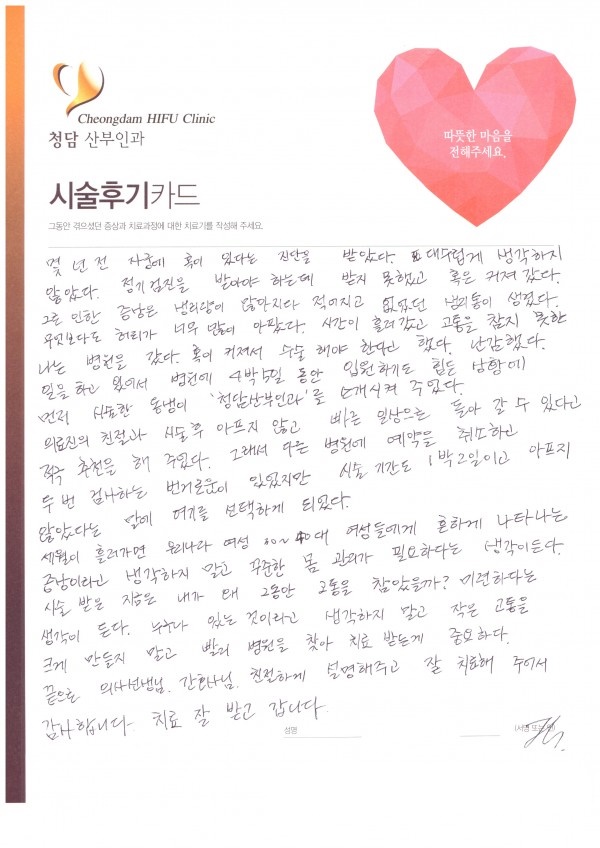 Cheongdam HIFU Clinic
청담 산부인과
따뜻한 마음을
전해주세요.
시술후기카드
그동안 겪으셨던 증상과 치료과정에 대한 치료기를 작성해 주세요.
몇 년 전 자궁에 혹이 있다는 진단을 받았다. 대수롭게 생각하지
않았다. 정기검진을 받아야 하는데 받지 못했고 혹은 커져 갔다.
그로 인한 증상은 냉리량이 많아지다 적어지고 없었던 생리통이 생겼다.
무엇보다도 허리가 너무 많이 아팠다. 시간이 흘러갔고 고통을 참지 못한
나는 병원을 갔다. 혹이 커져서 수술 해야 한다고 했다. 난감했다.
일을 하고 있어서 병원에 4박5일 동안 입원하기도 힘든 상황에
먼저 시술한 동생이 '청담산부인과'를 소개시켜 주었다.
의료진의 친절과 시술 후 아프지 않고 빠른 일상으로 돌아 갈 수 있다고
적극 추천을 해 주었다. 그래서 다른 병원에 예약을 취소하고
두 번 검사하는 번거로움이 있었지만 시술 기간도 1박2일이고 아프지
않았다는 말에 여기를 선택하게 되었다.
세월이 흘러가면 우리나라 여성 30~40대 여성들에게 흔하게 나타나는
증상이라고 생각하지 말고 꾸준한 몸 관리가 필요하다는 생각이든다.
시술 받은 지금은 내가 왜 그동안 고통을 참았을까? 미련하다는
생각이 든다. 누구나 있는 것이라고 생각하지 말고 작은 고통을
크게 만들지 말고 빨리 병원을 찾아 치료 받는게 중요하다.
끝으로 의사선생님, 간호사님, 친절하게 설명해주고 잘 치료해 주어서
감사합니다. 치료 잘 받고 갑니다.
성명
(서명 또는 인)